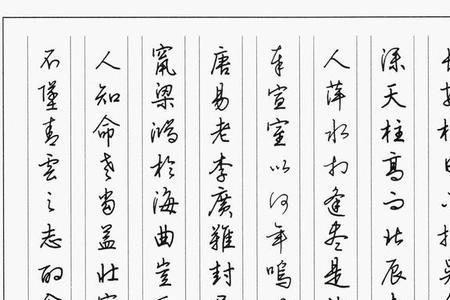 深天柱高而北辰
人萍水相逢盡是
奉宣室以何年嗚
唐易老李廣難封
竄梁鴻於海曲豈
人知命老當益壯
不墜青雲之志酌